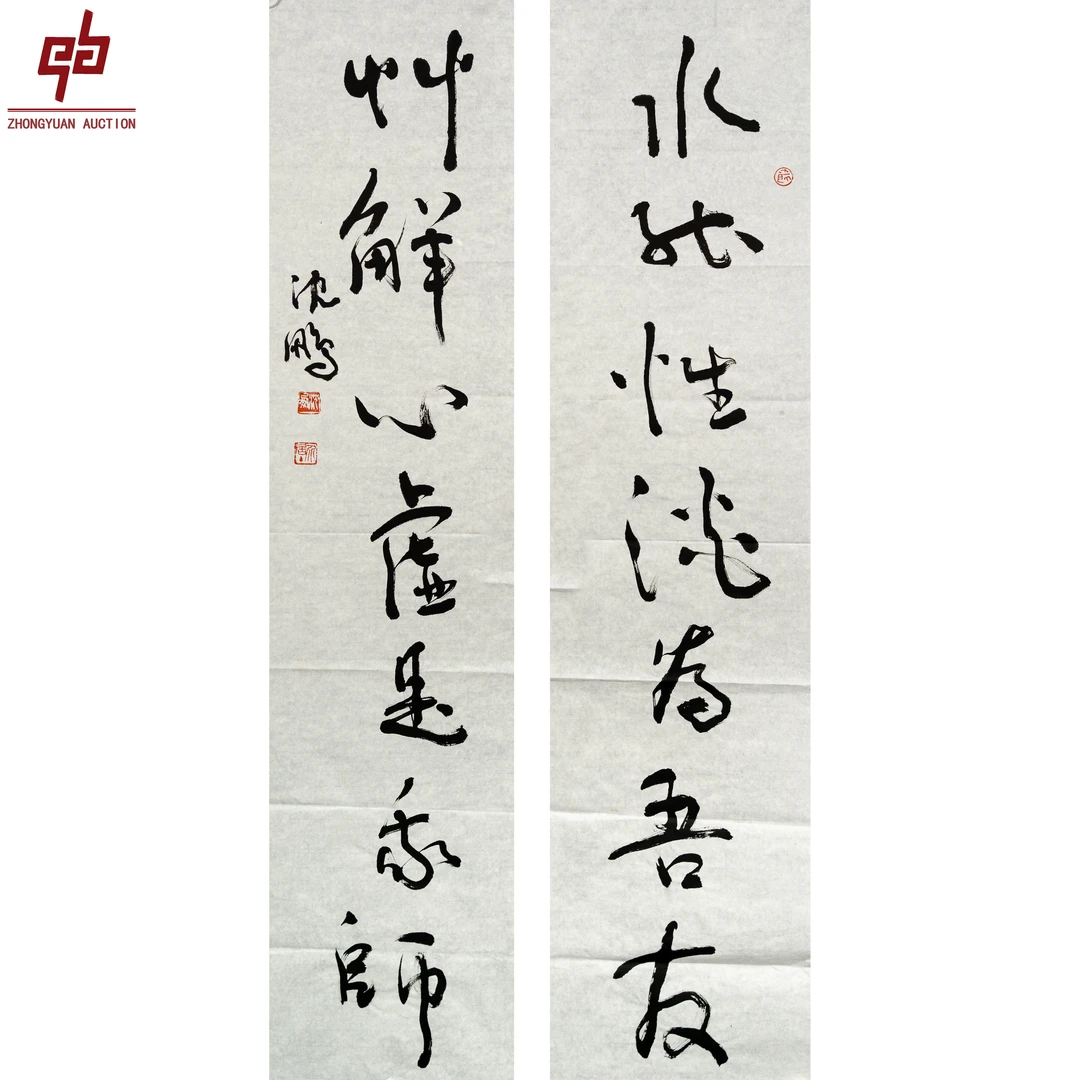 ZHONGYUAN AUCTION
水能性淡為吾友
竹解心虛是我師
沈鵬